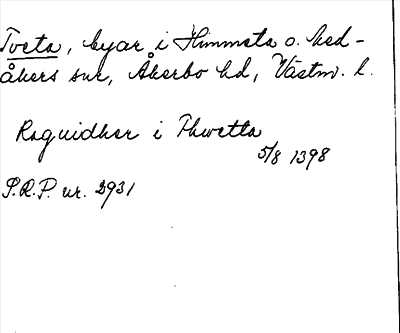 Tveta, byar i Himmeta o. Med-
åkers snr, Åkerbo hd, Västm. l.
Raguidher i Thwetta
5/8 1398
S.R.P. nr. 2931